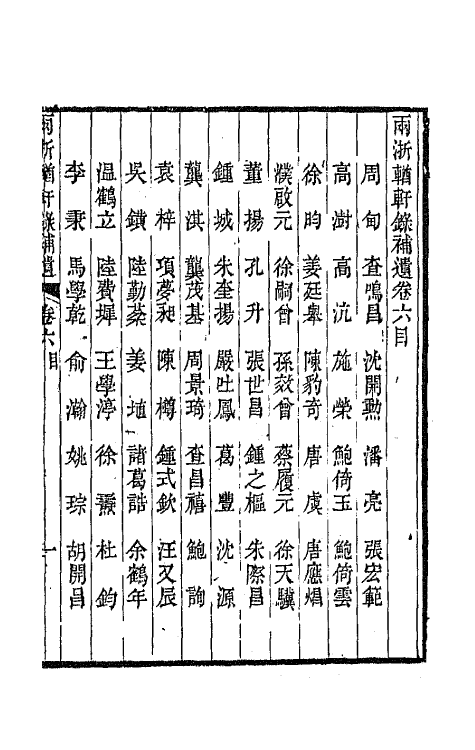 兩浙輶軒錄補遺卷六目
周旬　查鳴昌　沈開勲　潘亮　張宏範
高澍　高沆　施榮　鮑倚玉　鮑倚雲
徐昀　姜廷㮣　陳豹奇　唐虞　唐應焻
濮啟元　徐嗣曾　孫效曾　蔡履元　徐天驥
董揚　孔升　張世昌　鍾之樞　朱際昌
鍾城　朱奎揚　嚴吐鳳　葛豐　沈源
龔淇　龔茂基　周景琦　查昌禧　鮑詢
袁梓　項夢昶　陳樽　鍾式欽　汪又辰
吳鐄　陸勤棻　姜埴　諸葛誥　余鶴年
温鶴立　陸費墀　王學淳　徐　杜鈞
李秉　馬學乾　俞瀚　姚琮　胡開昌
兩浙輶軒錄補遺　卷六目　一